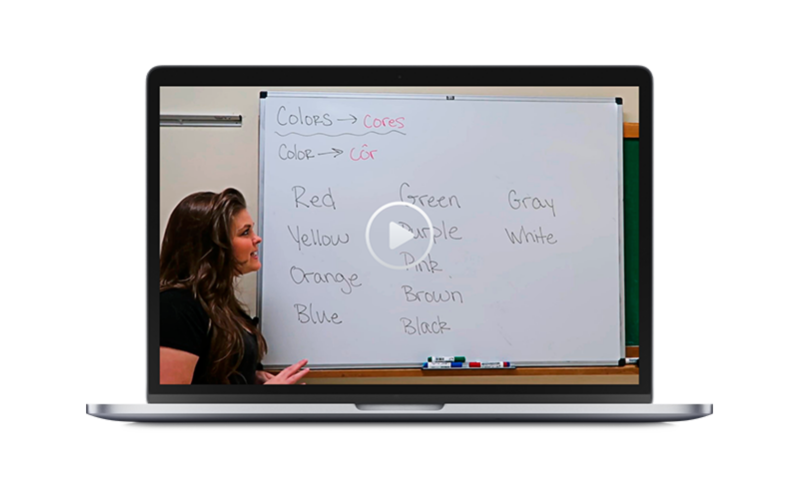 Colors → Cores
Color → Côr
Red
Yellow
Orange
Blue
Green
Purple
Pink
Brown
Black
Gray
White